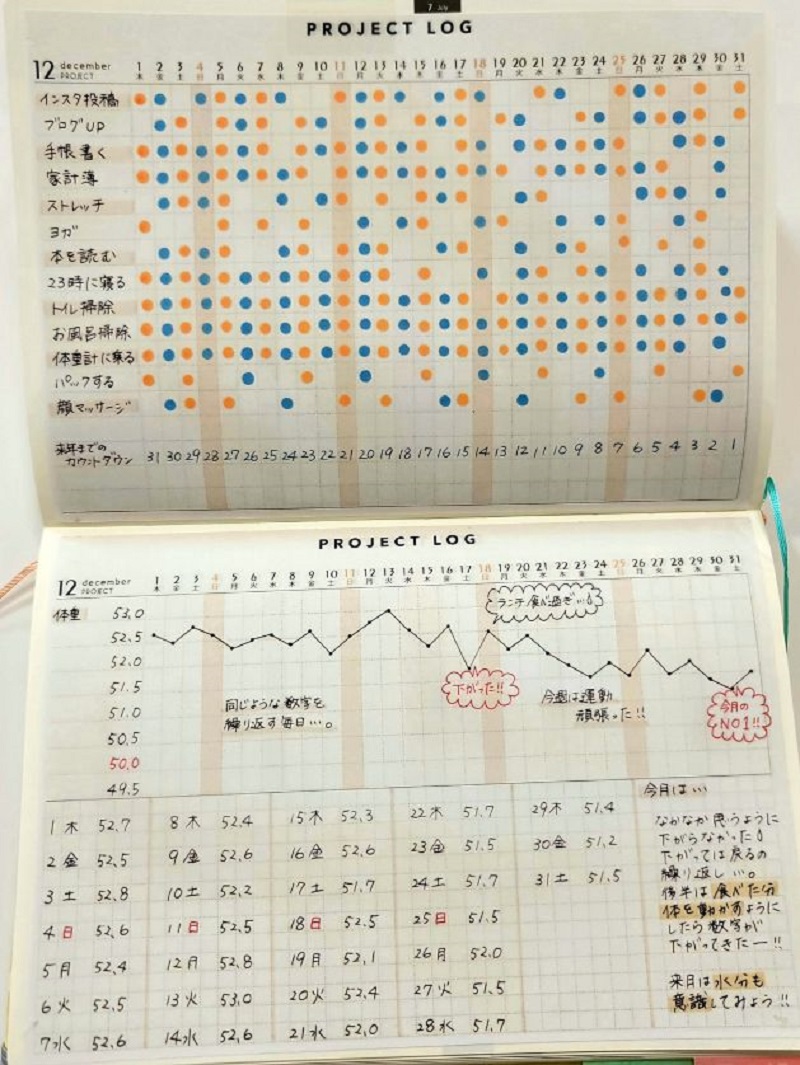 PROJECT LOG
12 december
PROJECT
1 2 3 4 5 6 7 8 9 10 11 12 13 14 15 16 17 18 19 20 21 22 23 24 25 26 27 28 29 30 31
木 金 土 日 月 火 水 木 金 土 日 月 火 水 木 金 土 日 月 火 水 木 金 土 日 月 火 水 木 金 土
インスタ投稿
ブログUP
手帳書く
家計簿
ストレッチ
ヨガ
本を読む
23時に寝る
トイレ掃除
お風呂掃除
体重計に乗る
パックする
顔マッサージ
来年までの
カウントダウン
31 30 29 28 27 26 25 24 23 22 21 20 19 18 17 16 15 14 13 12 11 10 9 8 7 6 5 4 3 2 1
PROJECT LOG
12 december
PROJECT
1 2 3 4 5 6 7 8 9 10 11 12 13 14 15 16 17 18 19 20 21 22 23 24 25 26 27 28 29 30 31
木 金 土 日 月 火 水 木 金 土 日 月 火 水 木 金 土 日 月 火 水 木 金 土 日 月 火 水 木 金 土
体重
53.0
52.5
52.0
51.5
51.0
50.5
50.0
49.5
ランチ食べ過ぎ…
下がった!!
同じような数字を
繰り返す毎日…。
今週は運動
頑張った!!
今月の
NO1!!
1 木 52.7
2 金 52.5
3 土 52.8
4 日 52.6
5 月 52.4
6 火 52.5
7 水 52.6
8 木 52.4
9 金 52.6
10 土 52.2
11 日 52.5
12 月 52.8
13 火 53.0
14 水 52.6
15 木 52.3
16 金 52.6
17 土 51.7
18 日 52.5
19 月 52.1
20 火 52.4
21 水 52.0
22 木 51.7
23 金 51.5
24 土 51.7
25 日 51.5
26 月 52.0
27 火 51.5
28 水 51.7
29 木 51.4
30 金 51.2
31 土 51.5
今月は…
なかなか思うように
下がらなかった
下がっては戻るの
繰り返し…。
後半は食べた分
体を動かすように
したら数字が
下がってきたー!!
来月は水分も
意識してみよう!!